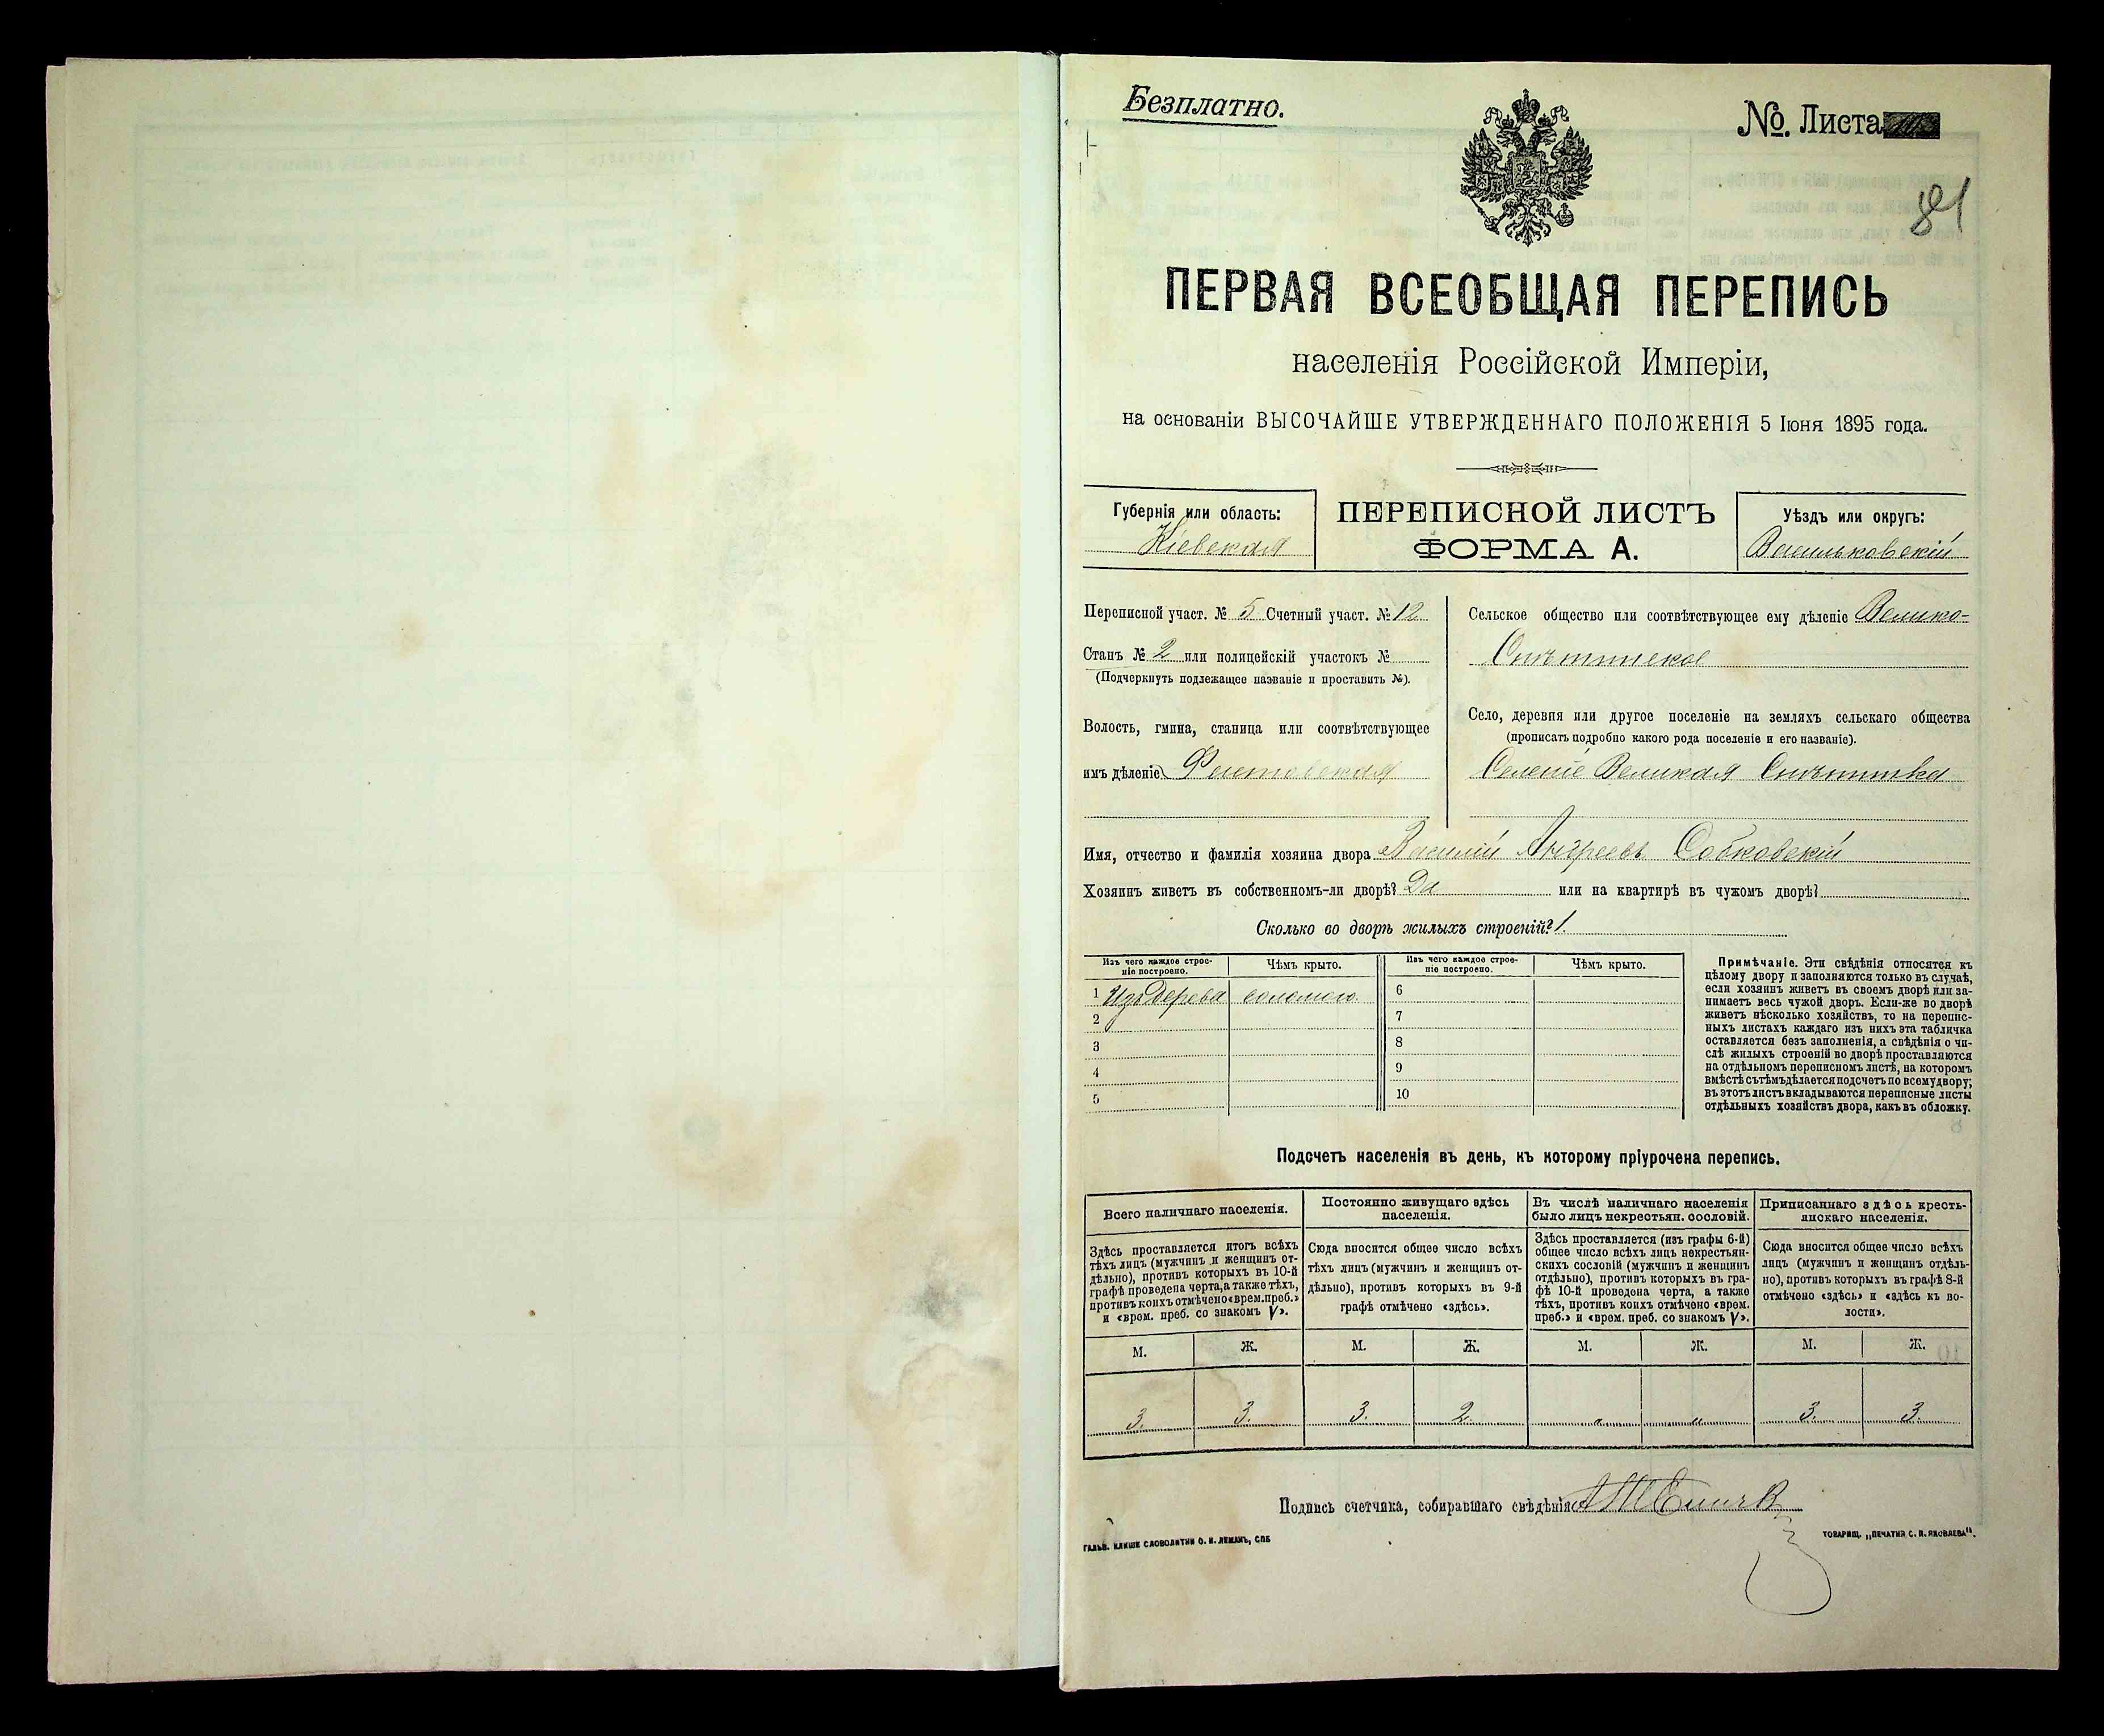 Безплатно.
№. Листа
81
ПЕРВАЯ ВСЕОБЩАЯ ПЕРЕПИСЬ
населенія Россійской Имперіи,
на основаніи ВЫСОЧАЙШЕ УТВЕРЖДЕННАГО ПОЛОЖЕНІЯ 5 Іюня 1895 года.
Губернія или область:
Кіевская
ПЕРЕПИСНОЙ ЛИСТЪ
ФОРМА А.
Уѣздъ или округъ:
Васильковскій
Переписной участ. № 5 Счетный участ. № 12
Станъ № 2 или полицейскій участокъ №
(Подчеркнуть подлежащее названіе и проставить №).
Волость, гмина, станица или соотвѣтствующее
имъ дѣленіе Фастовская
Сельское общество или соотвѣтствующее ему дѣленіе Велико-
Снѣтинское
Село, деревня или другое поселеніе на земляхъ сельскаго общества
(прописать подробно какого рода поселеніе и его названіе).
Селеніе Великая Снѣтинка
Имя, отчество и фамилія хозяина двора Василій Андреевъ Собковскій
Хозяинъ живетъ въ собственномъ-ли дворѣ? Да или на квартирѣ въ чужомъ дворѣ?
Сколько во дворѣ жилыхъ строеній? 1.
Изъ чего каждое строе-
ніе построено.
Чѣмъ крыто.
Изъ чего каждое строе-
ніе построено.
Чѣмъ крыто.
1 Изъ дерева соломою 6
2 7
3 8
4 9
5 10
Примѣчаніе. Эти свѣдѣнія относятся къ
цѣлому двору и заполняются только въ случаѣ,
если хозяинъ живетъ въ своемъ дворѣ или за-
нимаетъ весь чужой дворъ. Если-же во дворѣ
живетъ нѣсколько хозяйствъ, то на перепис-
ныхъ листахъ каждаго изъ нихъ эта табличка
оставляется безъ заполненія, а свѣдѣнія о чи-
слѣ жилыхъ строеній во дворѣ проставляются
на отдѣльномъ переписномъ листѣ, на которомъ
вмѣстѣ съ тѣмъ дѣлается подсчетъ по всему двору;
въ этотъ листъ вкладываются переписные листы
отдѣльныхъ хозяйствъ двора, какъ въ обложку.
Подсчетъ населенія въ день, къ которому пріурочена перепись.
Всего наличнаго населенія.
Здѣсь проставляется итогъ всѣхъ
тѣхъ лицъ (мужчинъ и женщинъ от-
дѣльно), противъ которыхъ въ 10-й
графѣ проведена черта, а также тѣхъ,
противъ коихъ отмѣчено «врем. преб.»
и «врем. преб. со знакомъ V».
Постоянно живущаго здѣсь
населенія.
Сюда вносится общее число всѣхъ
тѣхъ лицъ (мужчинъ и женщинъ от-
дѣльно), противъ которыхъ въ 9-й
графѣ отмѣчено «здѣсь».
Въ числѣ наличнаго населенія
было лицъ некрестьян. сословій.
Здѣсь проставляется (изъ графы 6-й)
общее число всѣхъ лицъ некрестьян-
скихъ сословій (мужчинъ и женщинъ
отдѣльно), противъ которыхъ въ гра-
фѣ 10-й проведена черта, а также
тѣхъ, противъ коихъ отмѣчено «врем.
преб.» и «врем. преб. со знакомъ V».
Приписаннаго здѣсь кресть-
янскаго населенія.
Сюда вносится общее число всѣхъ
лицъ (мужчинъ и женщинъ отдѣль-
но), противъ которыхъ въ графѣ 8-й
отмѣчено «здѣсь» и «здѣсь къ во-
лости».
М. Ж. М. Ж. М. Ж. М. Ж.
3. 3. 3. 2. „ „ 3. 3.
Подпись счетчика, собиравшаго свѣдѣнія
ГАЛЬВ. КЛИШЕ СЛОВОЛИТНИ О. И. ЛЕМАНЪ, СПБ
ТОВАРИЩ. „ПЕЧАТНЯ С. П. ЯКОВЛЕВА“.